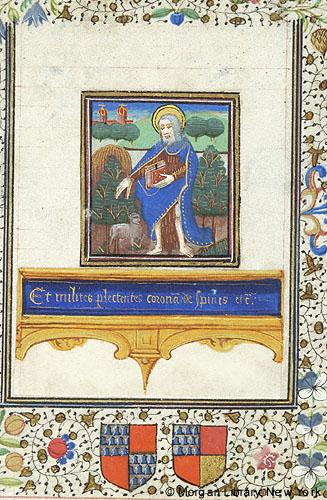 Et milites plectentes coronā de spinis etc̄.
© Morgan Library, New York